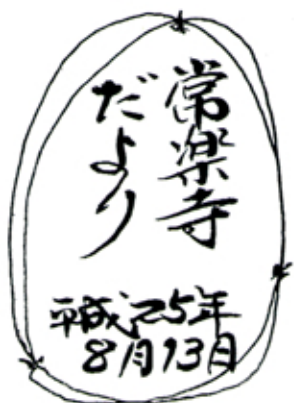 常楽寺
だより
平成25年
8月13日